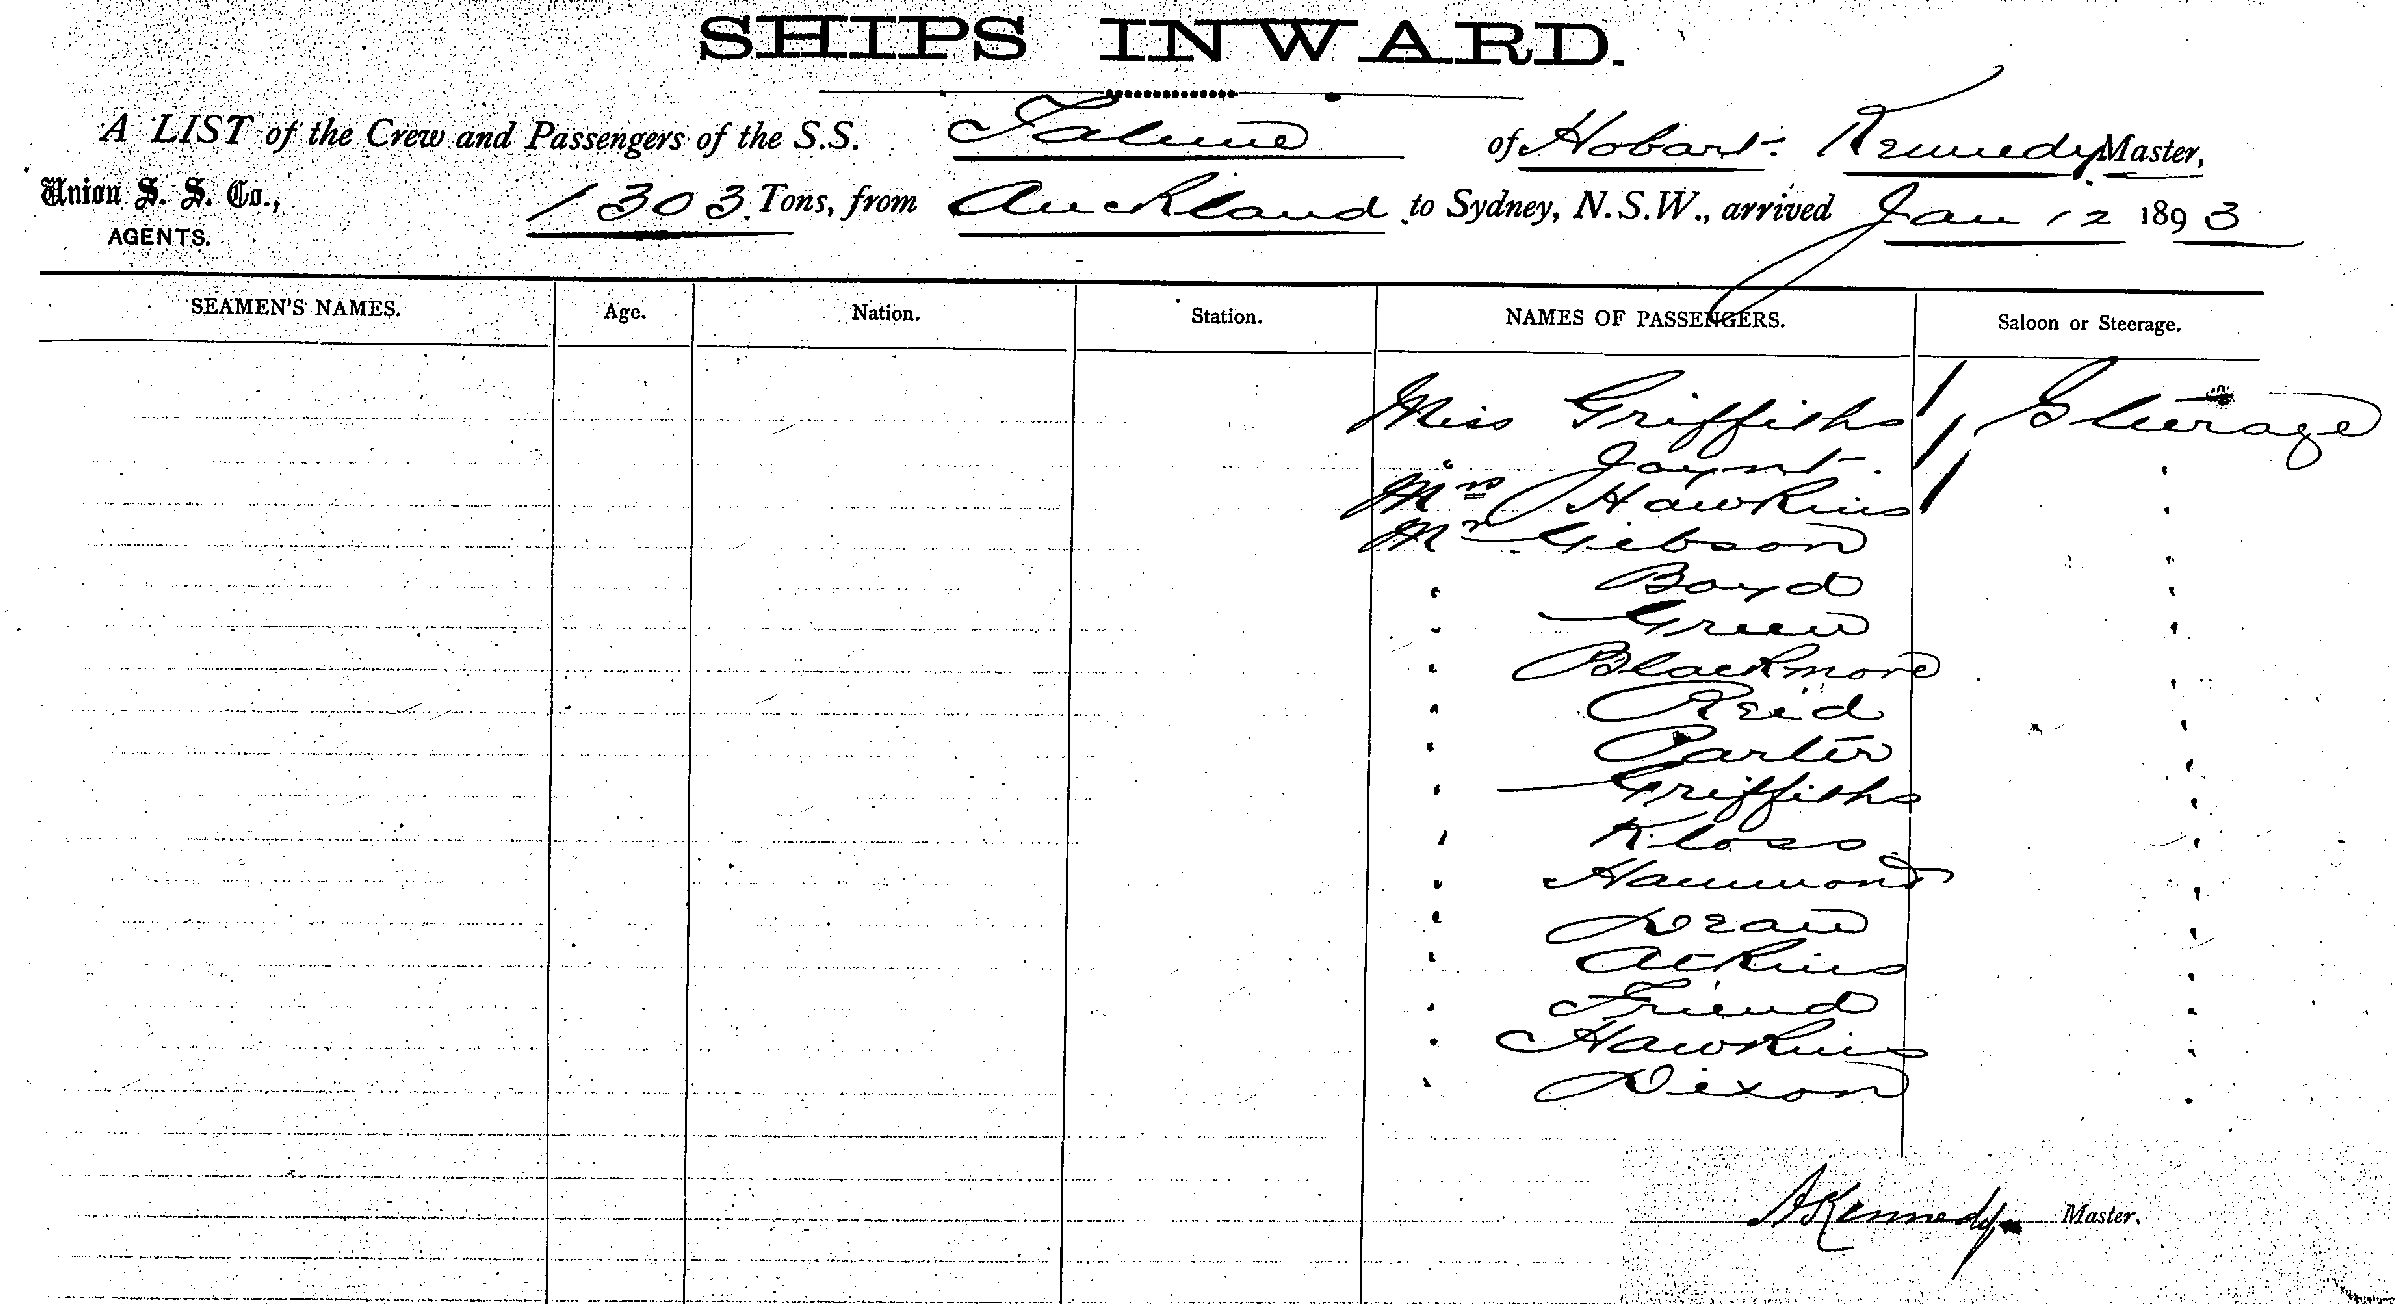 SHIPS INWARD.
A LIST of the Crew and Passengers of the S.S. Talune of Hobart. Kennedy Master,
Union S. S. Co., 1303 Tons, from Auckland to Sydney, N.S.W., arrived Jan 12 1893
AGENTS.
SEAMEN'S NAMES. Age. Nation. Station. NAMES OF PASSENGERS. Saloon or Steerage.
Miss Griffiths Steerage
" Joynt. "
Mrs Hawkins "
Mr Gibson "
" Boyd "
" Green "
" Blackmore "
" Reid "
" Porter "
" Griffiths "
" Kloss "
" Hammond "
" Dean "
" Atkins "
" Friend "
" Hawkins "
" Dixon "
AKennedy Master.